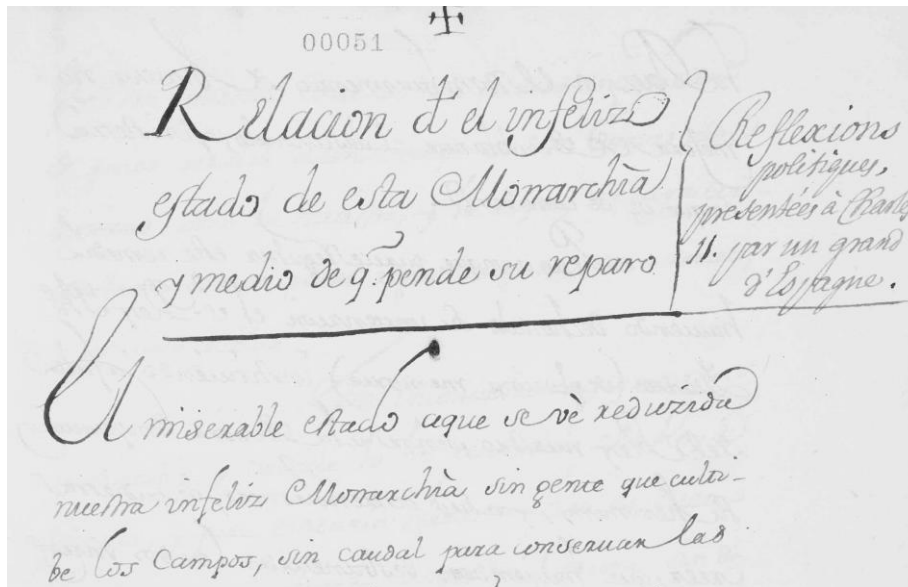 00051
Relacion d'el infeliz
estado de esta Monarchia
y medio de q. pende su reparo
Reflexions
politiques,
presentées à Charles
II. par un grand
d'Espagne.
El miserable estado aque se vè reduzida
nuestra infeliz Monarchìa sin gente que culti-
be los Campos, sin caudal para conseruar las